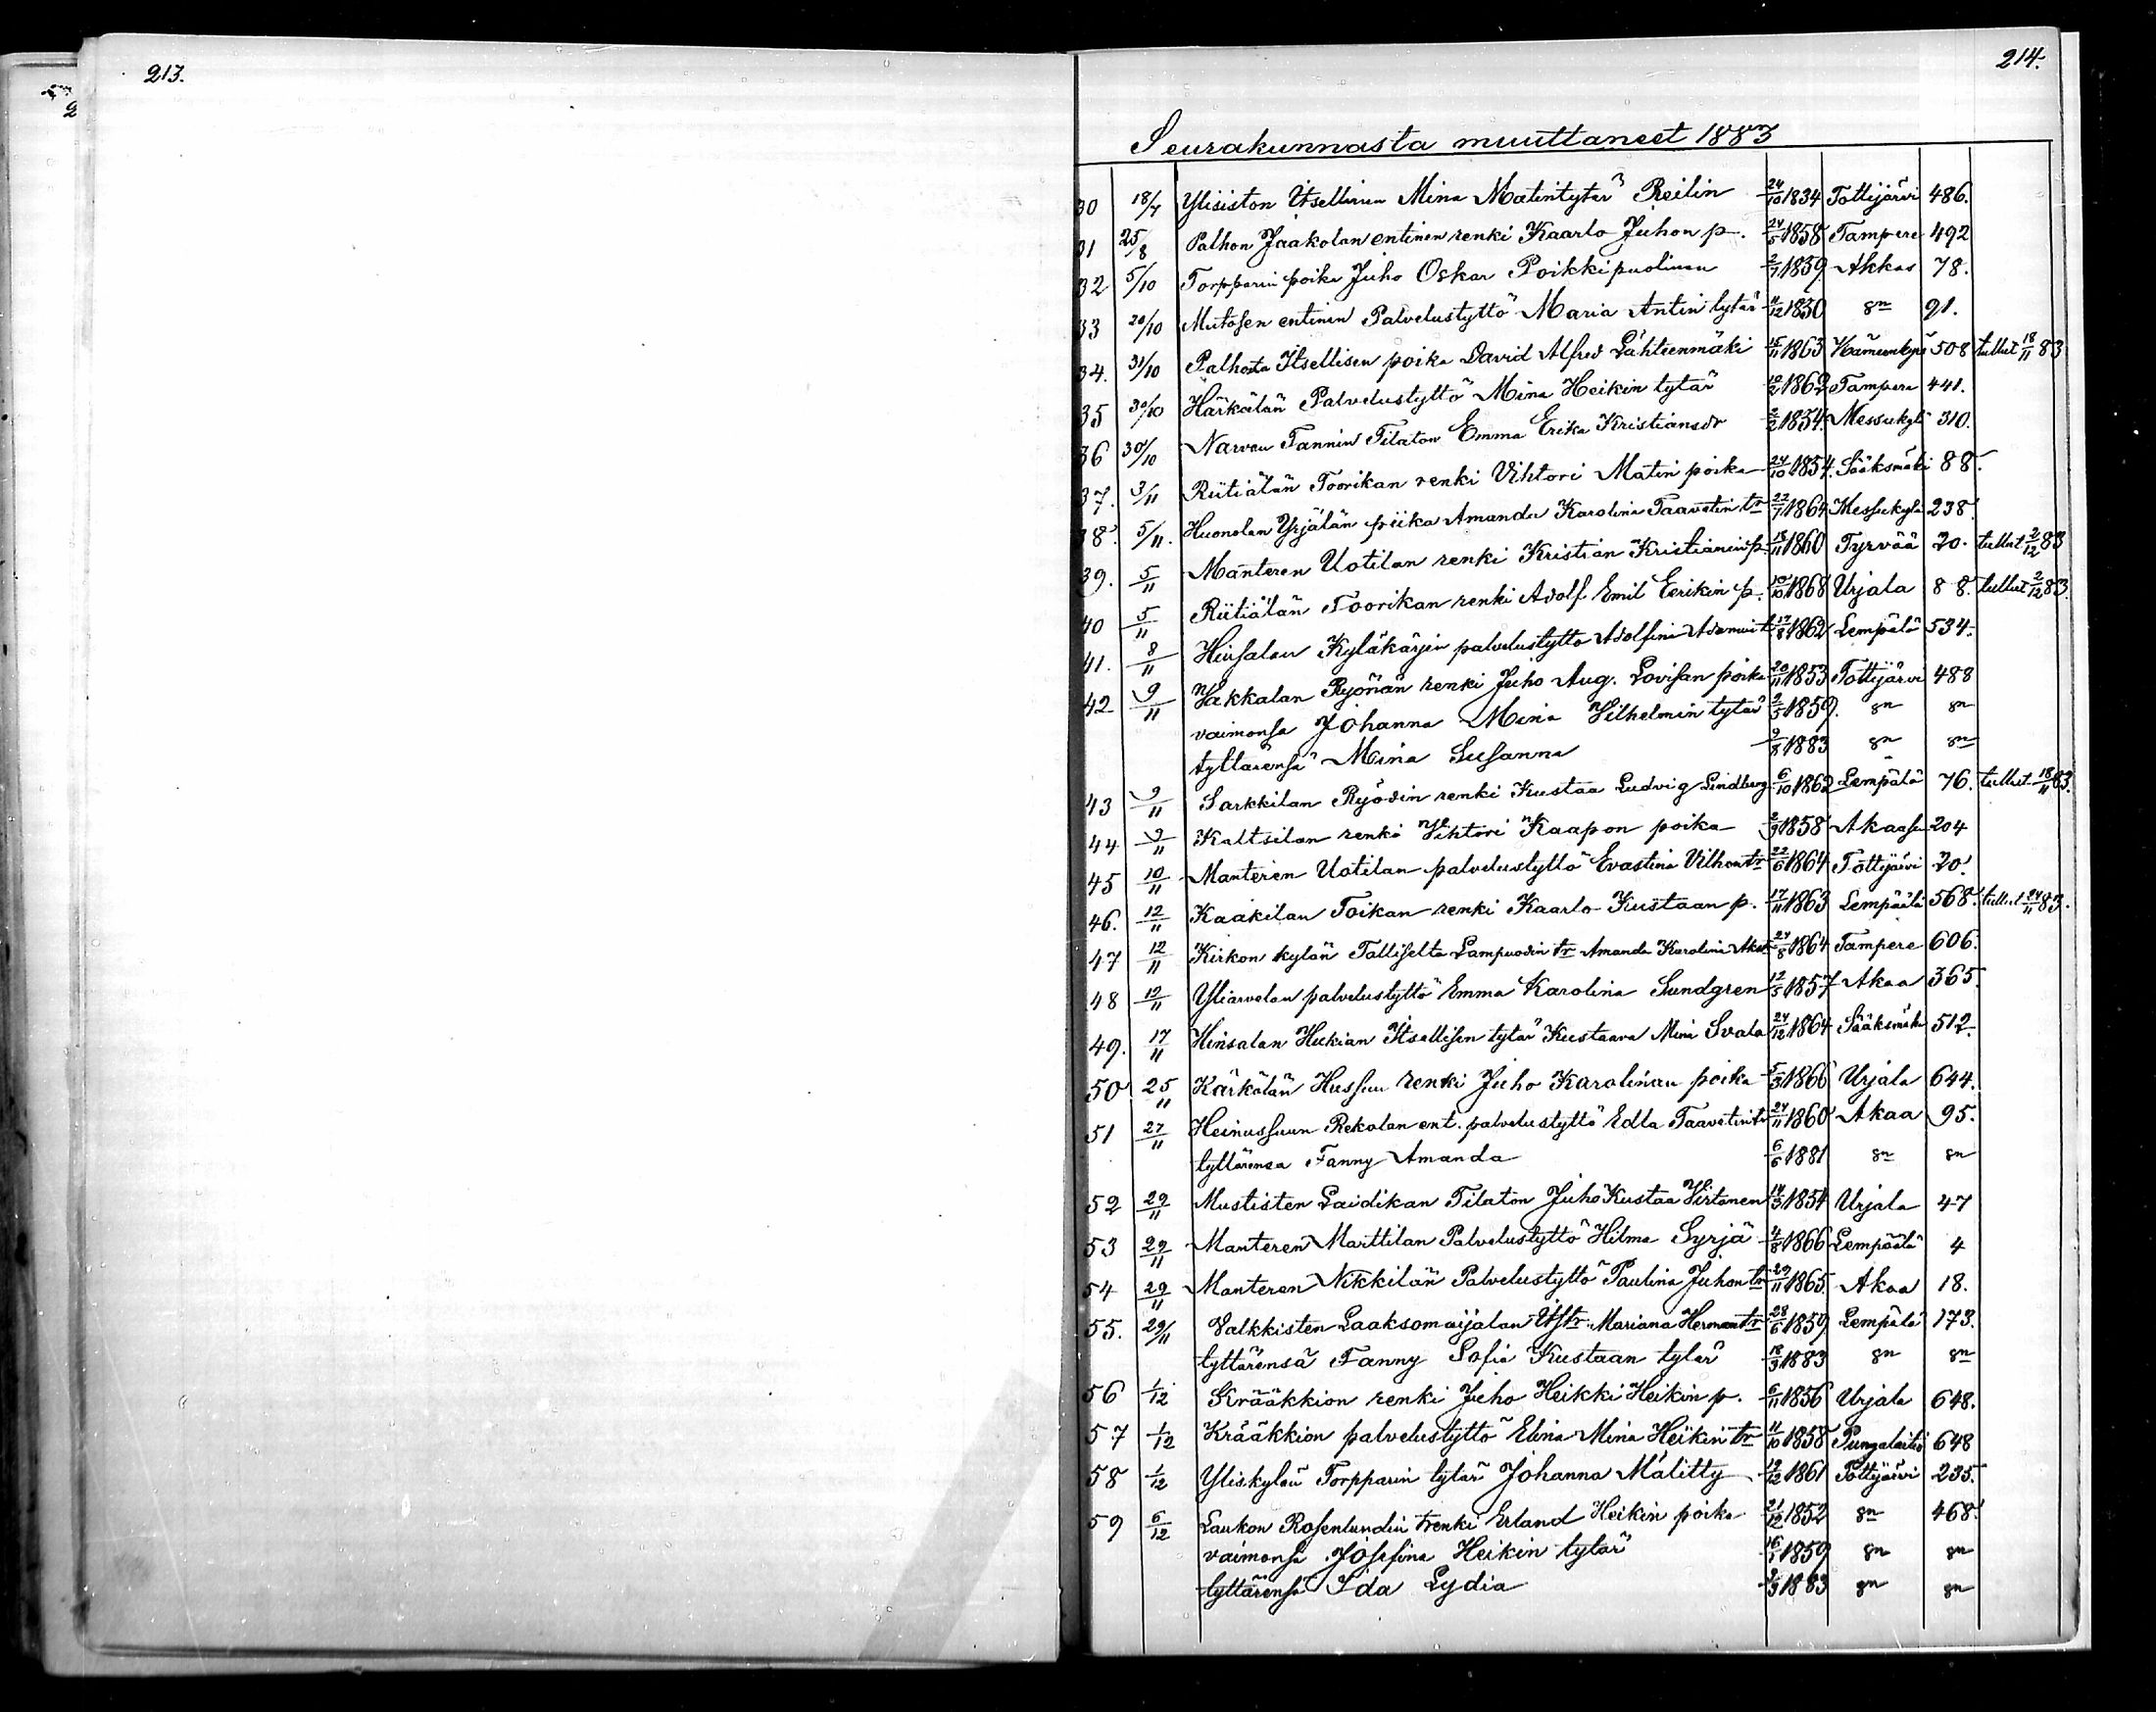 213.
214.
Seurakunnasta muuttaneet 1883
30 18/7 Ylisiston Itsellinen Mina Matintytär Reilin 24/10 1834 Tottijärvi 486.
31 25/8 Palhon Jaakolan entinen renki Kaarlo Juhon p. 24/5 1858 Tampere 492
32 5/10 Torpparin poika Juho Oskar Poikkipuolinen 2/7 1859 Akkas 78.
33 20/10 Mutosen entinen Palvelustyttö Maria Antin tytär 11/12 1850 sn 91.
34. 31/10 Palhosta Itsellisen poika David Alfred Lähteenmäki 15/11 1863 Hämeenkyrö 508 tullut 18/11 83
35 30/10 Härkälän Palvelustyttö Mina Heikin tytär 10/2 1862 Tampere 441.
36 30/10 Narvan Tannin Tilaton Emma Erika Kristiansdr 2/2 1854. Messukylä 310.
37. 3/11 Riitiälän Toorikan renki Vihtori Matin poika 24/10 1854. Sääksmäki 88.
38. 5/11. Huonolan Yrjälän piika Amanda Karolina Taavetin tr 22/7 1864 Messukylä 238.
39. 5/11 Manteren Uotilan renki Kristian Kristianin p. 15/11 1860 Tyrvää 20. tullut 2/12 83
40 5/11 Riitiälän Toorikan renki Adolf Emil Eerikin p. 10/10 1868 Urjala 88. tullut 2/12 83.
41. 8/11 Hinsalan Kyläkärjin palvelustyttö Adolfina Adamin t 17/8 1862 Lempälä 534.
42 9/11 Vakkalan Ryönän renki Juho Aug. Lovisan poika 20/11 1853 Tottijärvi 488
vaimonsa Johanna Mina Vilhelmin tytär 2/5 1859. sn sn
tyttärensä Mina Susanna 9/8 1883 sn sn
43 9/11 Sarkkilan Ryödin renki Kustaa Ludvig Lindberg 6/10 1862 Lempälä 76. tullut 18/11 83.
44 9/11 Kaltsilan renki Vihtori Kaapon poika 2/9 1858 Akaasen 204
45 10/11 Manteren Uotilan palvelustyttö Evastina Vilhon tr 22/6 1864 Tottijärvi 20.
46. 12/11 Kaakilan Toikan renki Kaarlo Kustaan p. 17/11 1863 Lempäälä 568. tullut 24/11 83.
47 12/11 Kirkon kylän Talliselta Lampuodin tr Amanda Karolina 27/8 1864 Tampere 606.
48 12/11 Yliarvelan palvelustyttö Emma Karolina Sundgren 12/5 1857 Akaa 365.
49. 17/11 Hinsalan Hukian Itsellisen tytär Kustaava Mina Svala 24/12 1864 Sääksmäki 512.
50 25/11 Kärkölän Hussun renki Juho Karolinan poika 5/3 1866 Urjala 644.
51 27/11 Heinussuun Rekolan ent. palvelustyttö Edla Taavetin tr 24/11 1860 Akaa 95.
tyttärensa Fanny Amanda 6/6 1881 sn sn
52 29/11 Mustisten Laidikan Tilaton Juho Kustaa Virtanen 14/3 1854 Urjala 47
53 29/11 Manteren Marttilan Palvelustyttö Hilma Syrjä 4/8 1866 Lempäälä 4
54 29/11 Manteren Nikkilän Palvelustyttö Paulina Juhon tr 29/11 1865. Akaa 18.
55. 29/11 Valkkisten Laaksomaijalan Mariana Herman tr 28/6 1859 Lempälä 173.
tyttärensä Fanny Sofia Kustaan tytär 18/3 1883 sn sn
56 1/12 Krääkkion renki Juho Heikki Heikin p. 6/11 1856 Urjala 648.
57 1/12 Krääkkion palvelustyttö Elina Mina Heikin tr 11/10 1858 Pungalaitio 648
58 1/12 Yliskylän Torpparin tytär Johanna Malitty 19/12 1861 Tottijärvi 235.
59 6/12 Laukon Rosenlundin renki Erland Heikin poika 21/12 1852 sn 468.
vaimonsa Josefina Heikin tytär 16/1 1859 sn sn
tyttärensä Ida Lydia 3/3 1883 sn sn